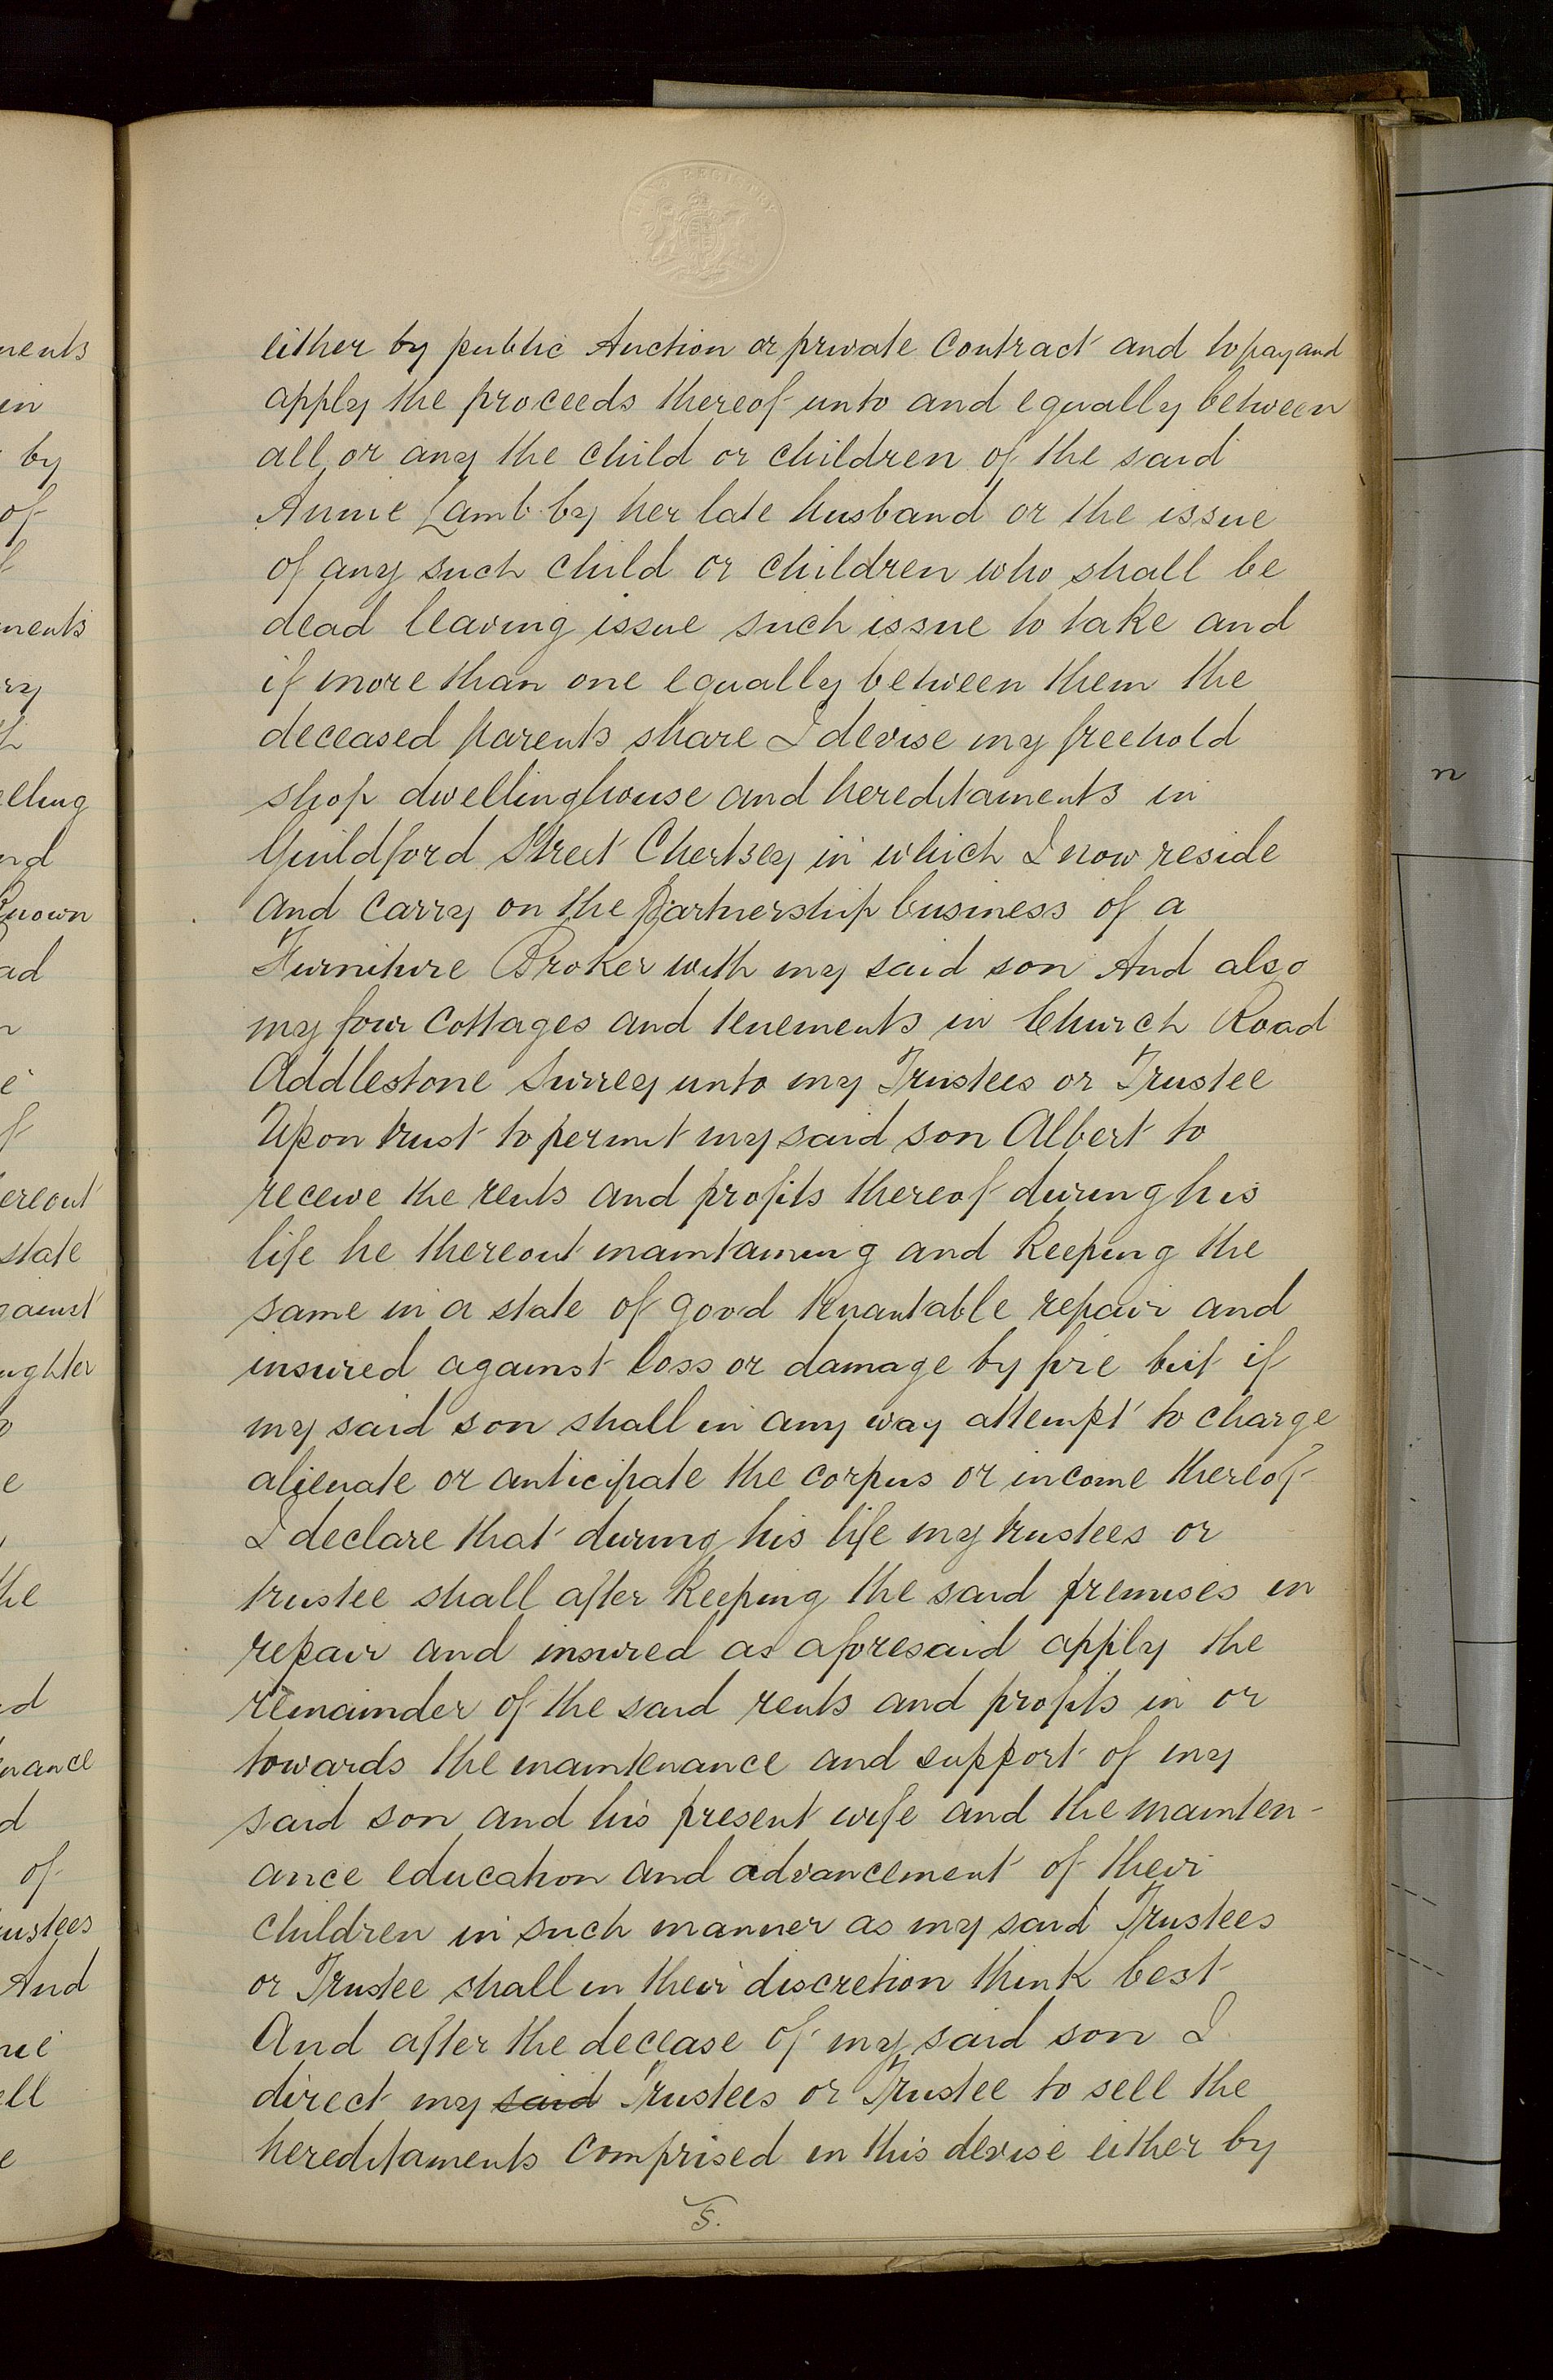 LAND REGISTRY
either by public Auction or private Contract and to pay and
apply the proceeds thereof unto and equally between
all or any the child or children of the said
Annie Lamb by her late husband or the issue
of any such child or children who shall be
dead leaving issue such issue to take and
if more than one equally between them the
deceased parents share I devise my freehold
shop dwellinghouse and hereditaments in
Guildford Street Chertsey in which I now reside
and carry on the Partnership business of a
Furniture Broker with my said son And also
my four Cottages and tenements in Church Road
Addlestone Surrey unto my Trustees or Trustee
Upon trust to permit my said son Albert to
receive the rents and profits thereof during his
life he thereout maintaining and keeping the
same in a state of good tenantable repair and
insured against loss or damage by fire but if
my said son shall in any way attempt to charge
alienate or anticipate the corpus or income thereof
I declare that during his life my trustees or
trustee shall after keeping the said premises in
repair and insured as aforesaid apply the
remainder of the said rents and profits in or
towards the maintenance and support of my
said son and his present wife and the mainten-
ance education and advancement of their
children in such manner as my said Trustees
or Trustee shall in their discretion think best
And after the decease of my said son I
direct my said Trustees or Trustee to sell the
hereditaments comprised in this devise either by
5.